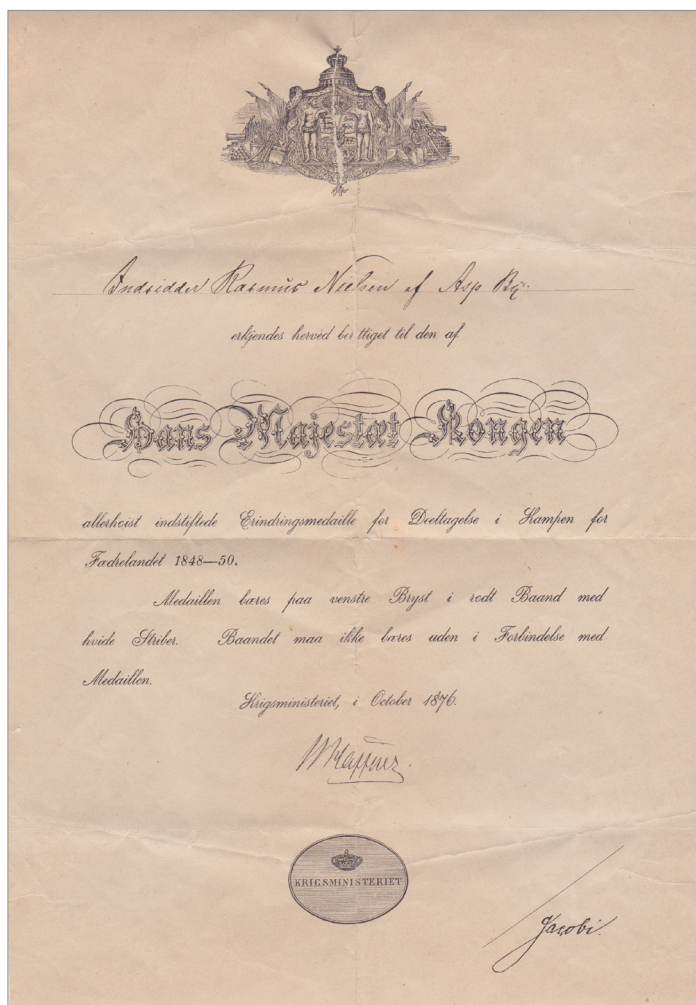 Indsidder Rasmus Nielsen af Asp By.
erkjendes herved berettiget til den af
Hans Majestæt Kongen
allerhoist indstiftede Erindringsmedaille for Deeltagelse i Kampen for
Fædrelandet 1848—50.
Medaillen bæres paa venstre Bryst i rødt Baand med
hvide Striber. Baandet maa ikke bæres uden i Forbindelse med
Medaillen.
Krigsministeriet, i October 1876.
KRIGSMINISTERIET
Jacobi.